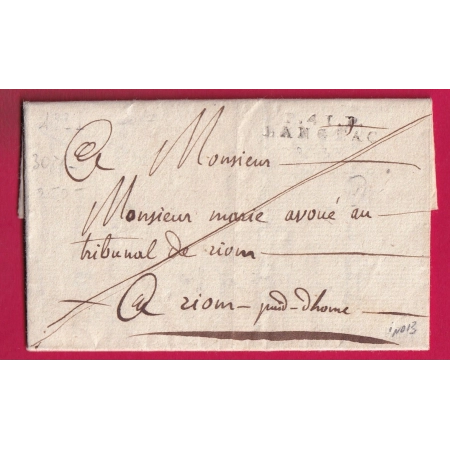 P.41.P.
LANGEAC
A Monsieur
Monsieur marie avoué au
tribunal de riom
A riom - puid-dhome